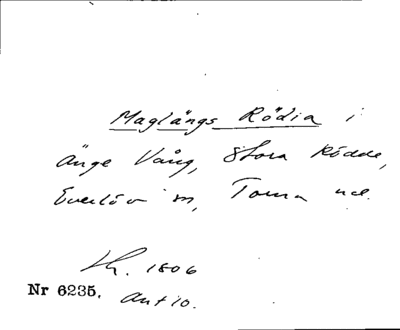 Maglängs Rödia i
Änge Vång, Stora Rödde,
Everlöv sn, Torna hd.
Lh. 1806
Nr 6235. Ant 10.